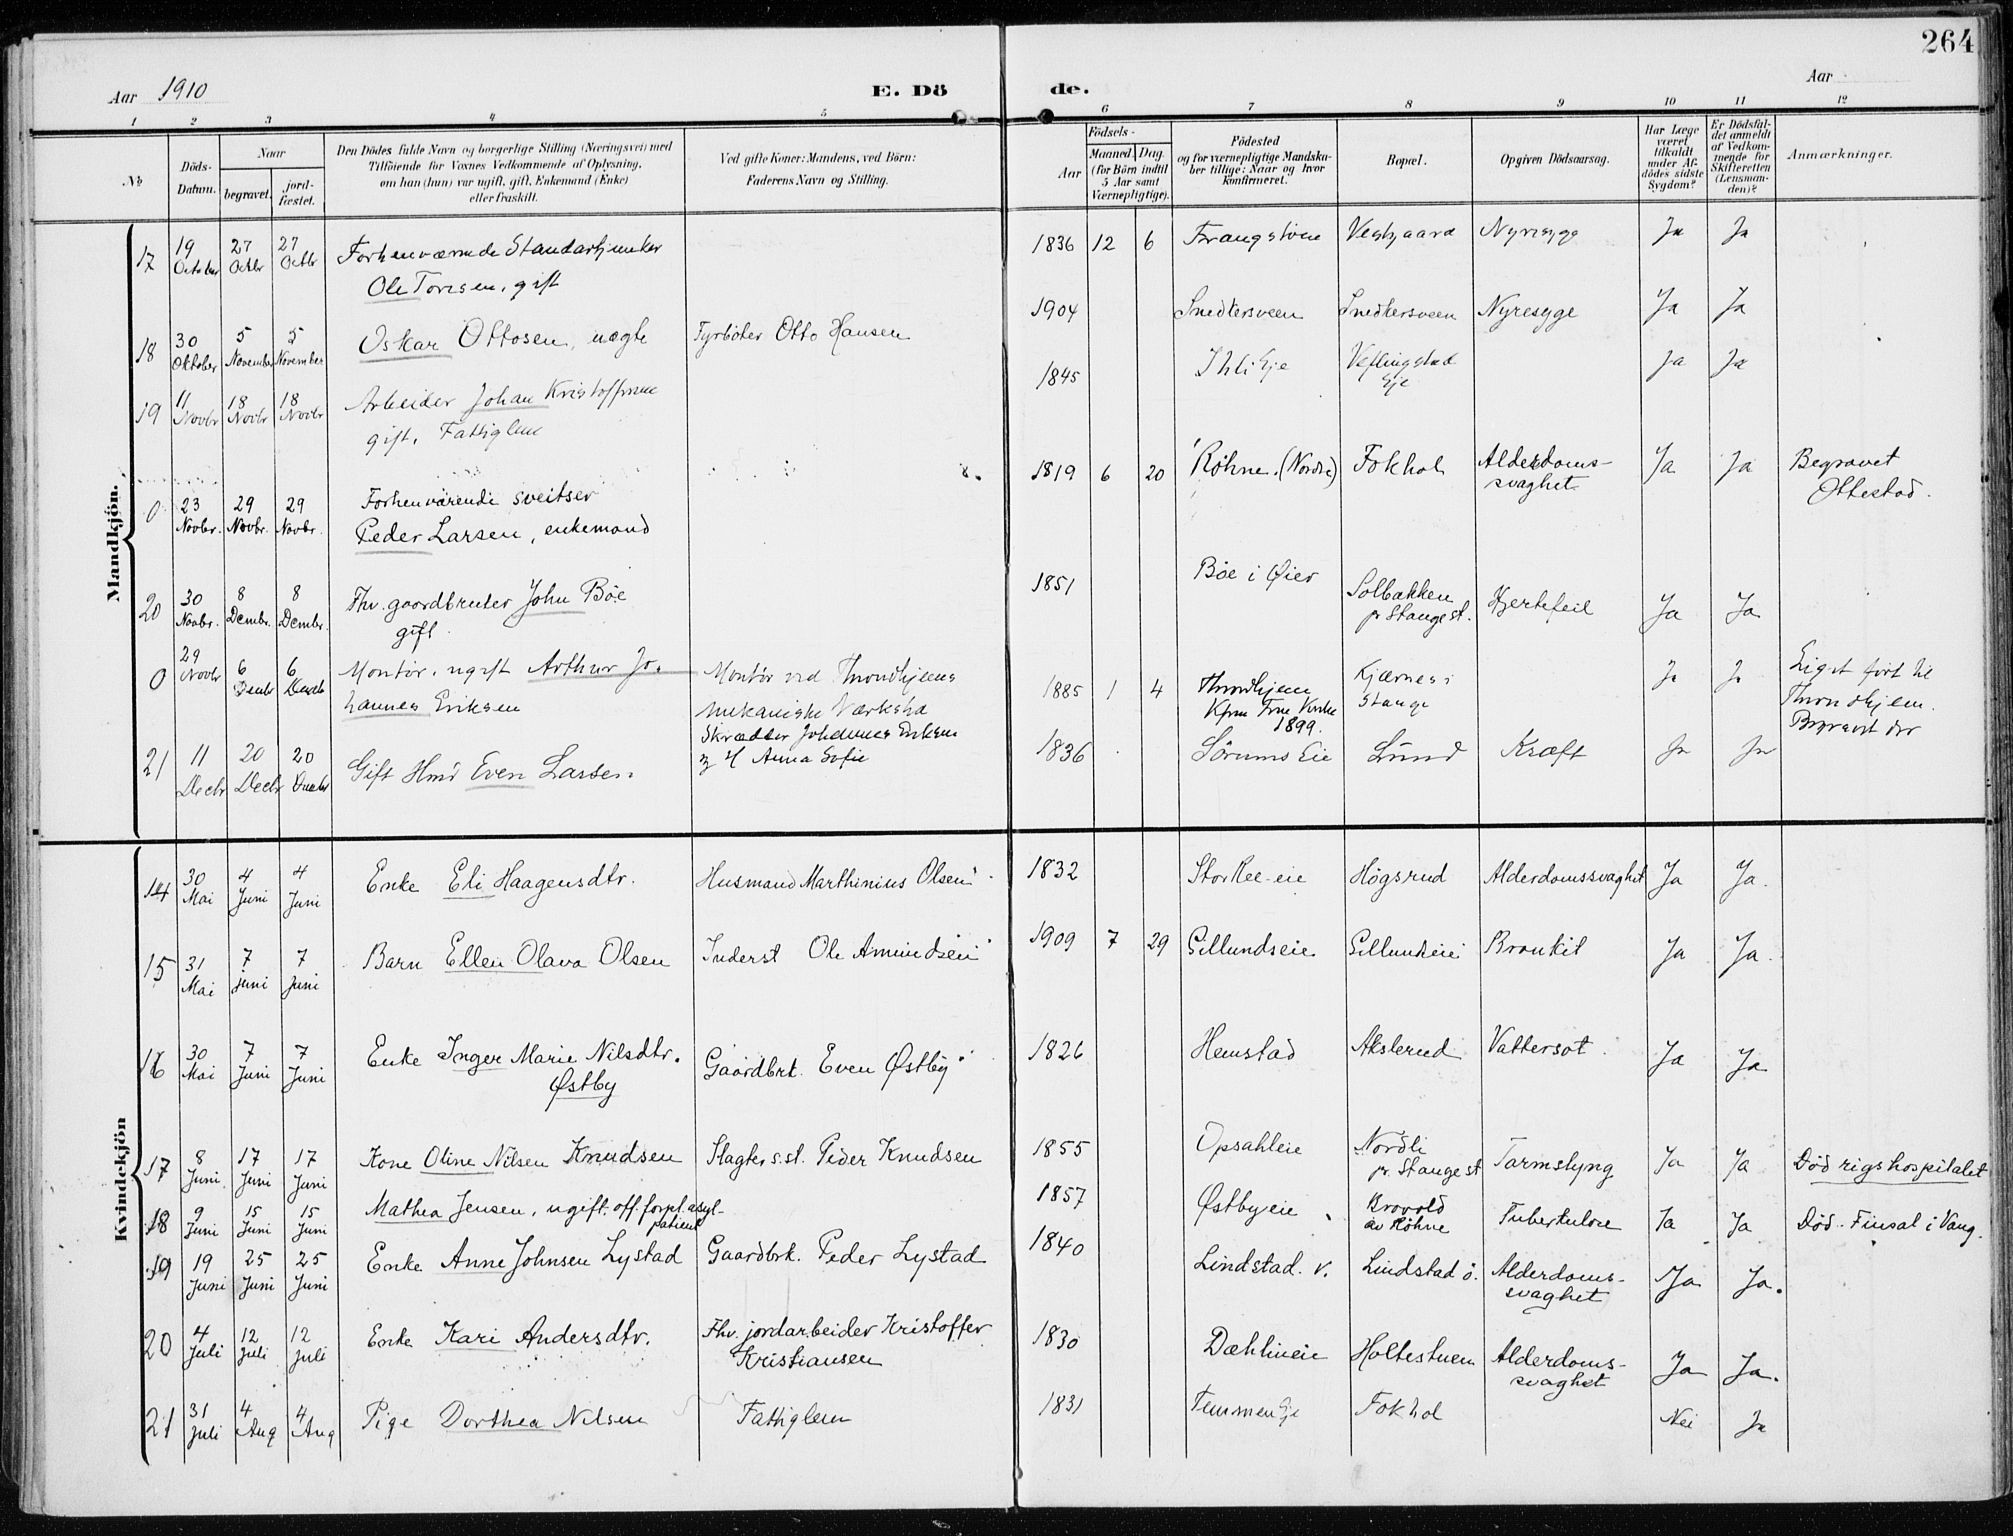 264
Aar 1910
E. Dö
de.
Aar
1 2 3 4 5 6 7 8 9 10 11 12
No
Döds-Datum.
Naar
begravet.
jordfæstet.
Den Dödes fulde Navn og borgerlige Stilling (Næringsvei) med
Tilföiende for Voxnes Vedkommende af Oplysning,
om han (hun) var ugift, gift, Enkemand (Enke)
eller fraskilt.
Ved gifte Koner: Mandens, ved Börn:
Faderens Navn og Stilling.
Födsels-
Aar
Maaned. Dag.
(for Börn indtil
5 Aar samt
Værnepligtige).
Födested
og for værnepligtige Mandskaber tillige: Naar og hvor
Konfirmeret.
Bopæl.
Opgiven Dödsaarsag.
Har Læge
været
tilkaldt
under Afdödes sidste
Sygdom?
Er Dödsfaldet anmeldt
af Vedkommende for
Skifteretten
(Lensmanden)?
Anmærkninger.
Mandkjön.
17 19 October 27 Octbr 27 Octbr Forhenværende Standartjunker
Ole Toresen, gift
1836 12 6 Vestgaard Nyresyge Ja Ja
18 30 Oktober 5 November 5 November Oskar Ottosen, uægte Fyrböter Otto Hansen 1904 Snedkersveen Snedkersveen Nyresyge Ja Ja
19 11 Novbr 18 Novbr 18 Novbr Arbeider Johan Kristoffersen
gift, Fattiglem
1845 Ihli Eje Vestingstad Eje Ja Ja
0 23 Novbr. 29 Novbr. 29 Novbr. Forhenværende sveitser
Peder Larsen, enkemand
1819 6 20 Røhne (Nordre) Fokhol Alderdoms-
svaghet. Ja Ja Begravet
Ottestad.
20 30 Novbr. 8 Dembr. 8 Dembr. Fhv. gaardbruker John Böe
gift.
1851 Böe i Øier Solbakken
pr Stange st. Hjertefeil Ja Ja
0 29 Novbr 6 Dembr 6 Dembr Montør, ugift Arthur Jo-
hannes Eriksen
Montör ved Throndhjems
mekaniske Værksted
Skrædder Johannes Eriksen
og H Anna Sofie
1885 1 4 Throndhjem
Kfm Frue Kirke
1899. Kjærnes i
Stange Ja Ja Liget fört til
Throndhjem.
Begravet der
21 11 Decbr 20 Decbr 20 Decbr Gift Hmd Even Larsen 1836 Sörums Eie Lund Kræft Ja Ja
Kvindekjön
14 30 Mai 4 Juni 4 Juni Enke Eli Haagensdtr. Husmand Marthinius Olsen 1832 Storhee-eie Högsrud Alderdomssvaghet Ja Ja.
15 31 Mai 7 juni 7 juni Barn Ellen Olava Olsen Inderst Ole Amundsen 1909 7 29 Gillundseie Gillundseie Bronkit Ja Ja.
16 30 Mai 7 Juni 7 Juni Enke Inger Marie Nilsdtr.
Østby Gaardbrk. Even Østby 1826 Hemstad Akslerud Vattersot. Ja Ja
17 8 Juni. 17 Juni 17 Juni Kone Oline Nilsen Knudsen Slagter s.st. Peder Knudsen 1855 Opsahleie Nordli
pr. Stange st Tarmslyng Ja Ja Död rigshospitalet
18 9 Juni 15 Juni 15 Juni Mathea Jensen, ugift. off. forpl. asyl-
patient 1857 Østbyeie Brovold
av Röhne Tuberkulose Ja Ja Död. Finsal i Vang.
19 19 Juni 25 Juni 25 Juni Enke Anne Johnsen Lystad Gaardbrk. Peder Lystad 1840 Lindstad. v. Lindstad ö. Alderdoms-
svaghet Ja Ja.
20 4 Juli 12 juli 12 juli Enke Kari Andersdtr. Fhv. jordarbeider Kristoffer
Kristiansen 1830 Dæhlineie Holtestuen Alderdoms-
svaghet Ja Ja.
21 31 juli 4 Aug 4 Aug Pige Dorthea Nilsen Fattiglem 1831 Temmen Eje Fokhol Nei Ja